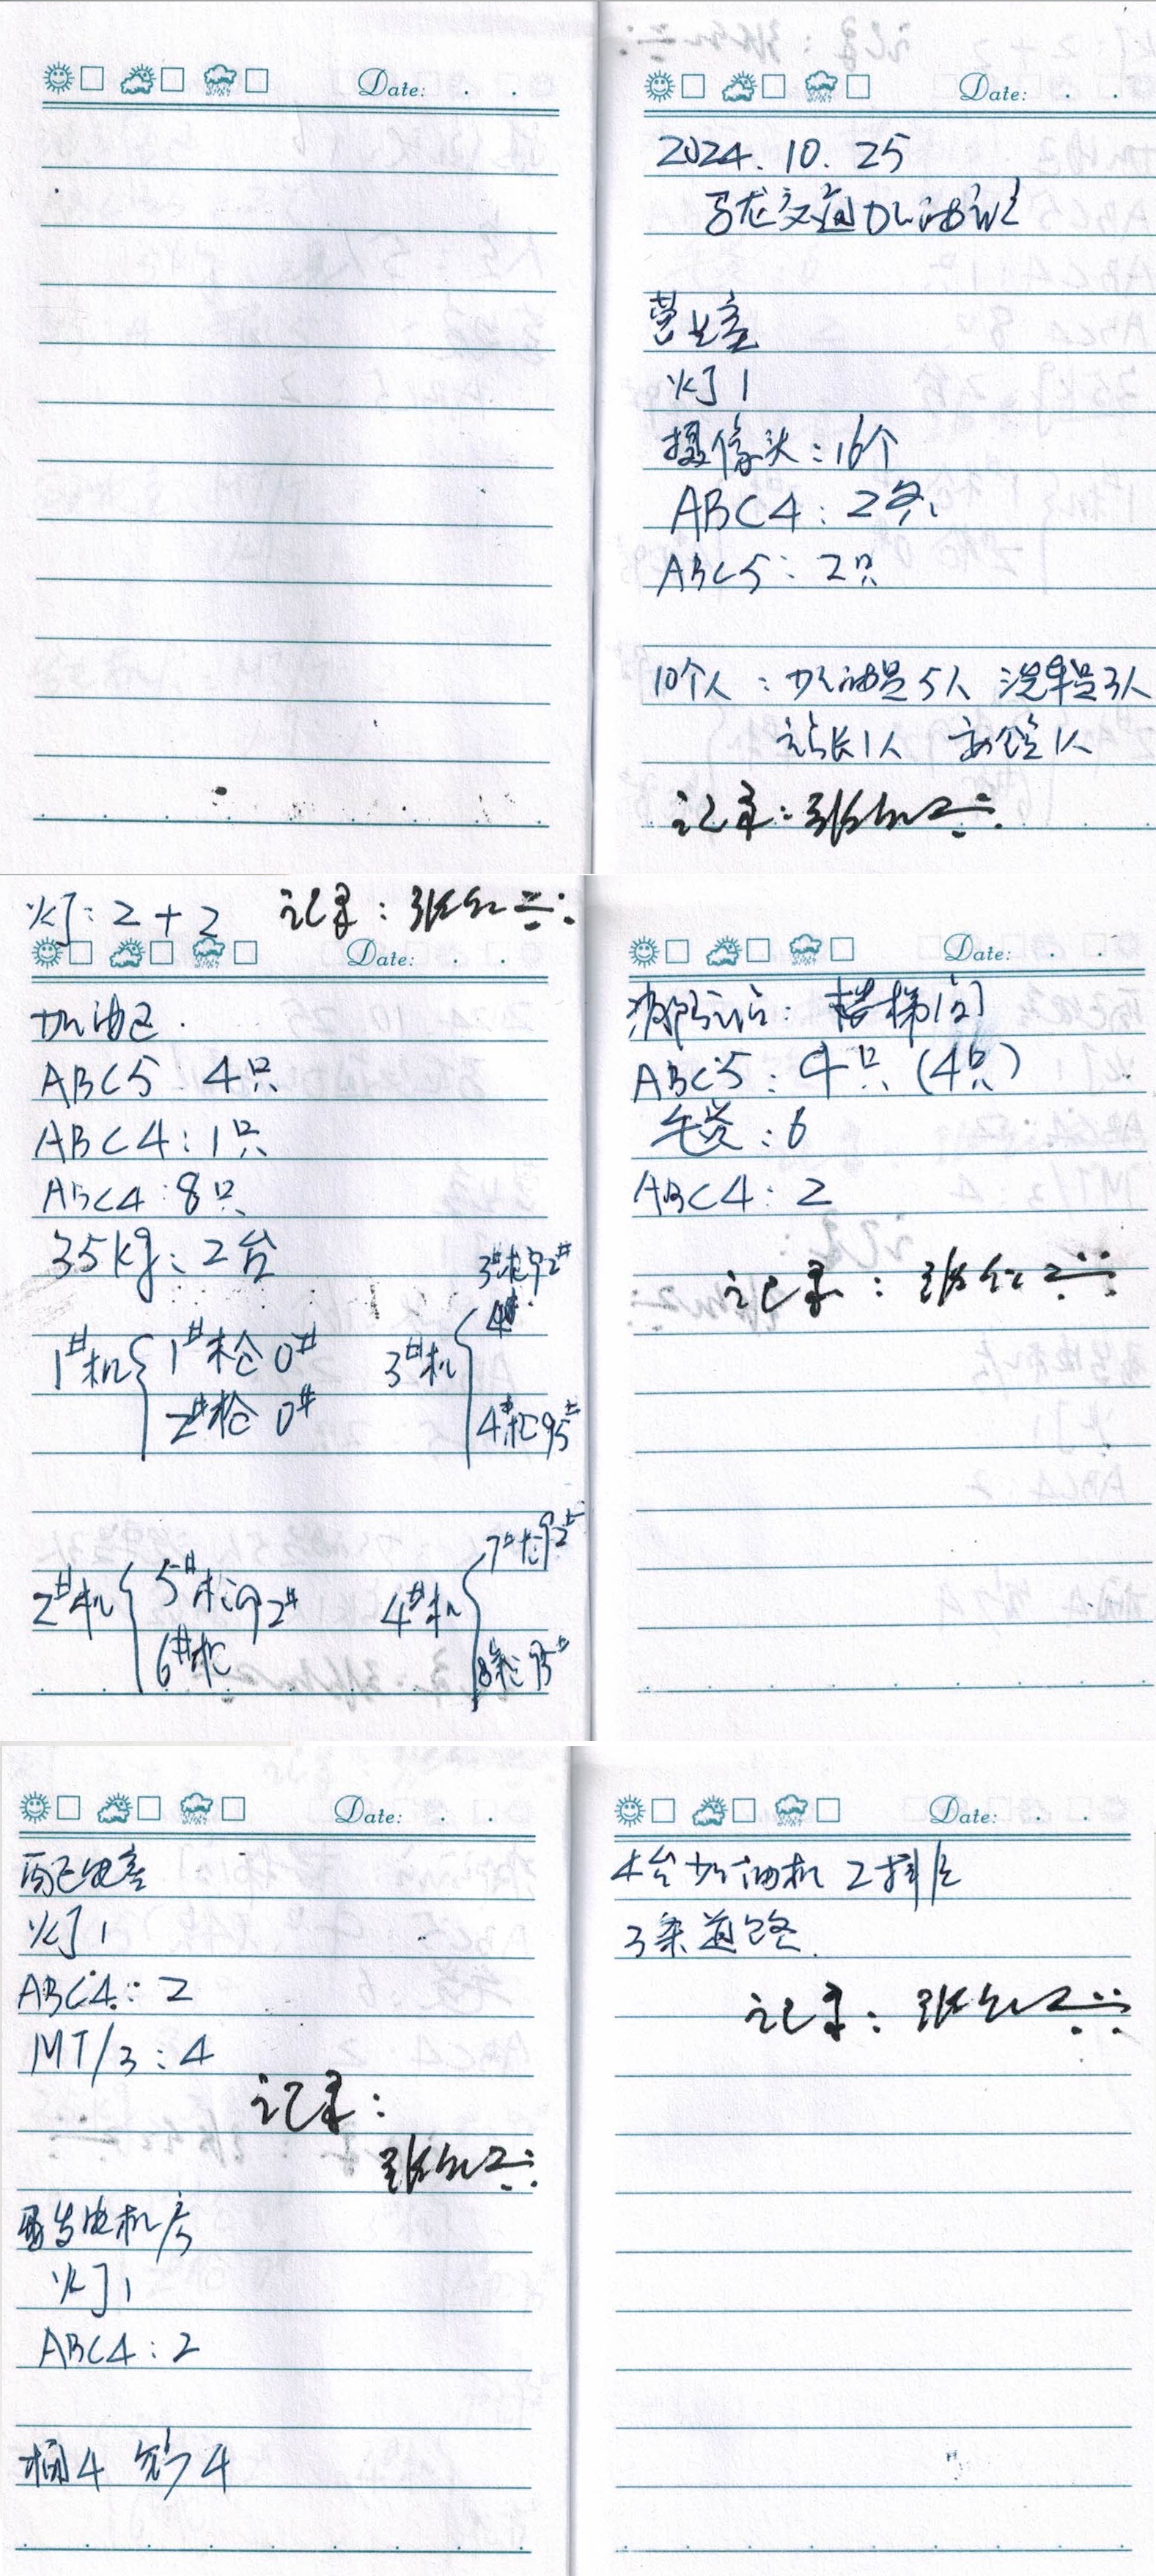 Date:
Date:
2024.10.25
马龙交通加油站
营业室
灯1
摄像头:16个
ABC4:2只
ABC5:2只
10个人:加油员5人 洗车员3人
站长1人 安管1人
记录:
灯:2+2 记录:
Date:
加油区.
ABC5 4只
ABC4:1只
ABC4:8只
35kg:2台
1#机 1#枪0#
2#枪0#
3#机 3#枪92#
4#枪95#
2#机 5#枪92#
6#枪
4#机 7#枪92#
8#枪95#
Date:
消防沙池: 楼梯间
ABC5:4只(4只)
毛毯:6
ABC4:2
记录:
Date:
配电室
灯1
ABC4:2
MT/3:4
记录:
发电机房
灯1
ABC4:2
桶4 铲4
Date:
4台加油机 2排
3条道路.
记录: